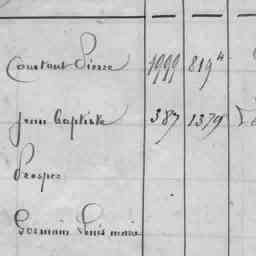 Constant Pierre 1999 819"
Jean Baptiste 387 1379
Prosper
Germain Louis marie